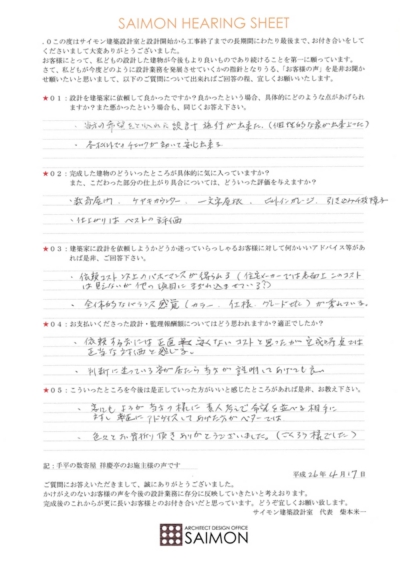 SAIMON HEARING SHEET
.0この度はサイモン建築設計室と設計開始から工事終了までの長期間にわたり最後まで、お付き合いをして
くださいまして大変ありがとうございました。
お客様にとって、私どもの設計した建物が今後もより良いものであり続けることを第一に願っています。
さて、私どもが今度どのように設計業務を発展させていくかの指針となりうる、「お客様の声」を是非お聞か
せ願いたいと思いまして、以下のご質問について出来ればご回答の程、宜しくお願いいたします。
★01：設計を建築家に依頼して良かったですか？良かったという場合、具体的にどのような点があげられ
ますか？また悪かったという場合も、同じくお答え下さい。
設計 施行が出来た。
★02：完成した建物のどういったところが具体的に気に入っていますか？
また、こだわった部分の仕上がり具合については、どういった評価を与えますか？
・数寄屋門、ケヤキカウンター、一文字屋根、ビルトインガレージ、
・仕上がりは ベストの評価
★03：建築家に設計を依頼しようかどうか迷っていらっしゃるお客様に対して何かいいアドバイス等があ
れば是非、ご回答下さい。
・依頼コスト以上のパフォーマンスが得られる (住宅メーカーでは表面上このコスト
は見えないが
・全体的なバランス感覚 (カラー、仕様、グレードetc) が優れている。
★04：お支払いくださった設計・監理報酬額についてはどう思われますか？適正でしたか？
・依頼する時には正直安くないコストと思ったが完成時点では
正当な対価と感じる。
・判断に迷っている
説明してあげても良い
★05：こういったところを今後は正していった方がいいと感じたところがあれば是非、お教え下さい。
アドバイスしてあげた方がベターでは
・色々とお骨折り頂きありがとうございました。(ごくろう様でした)
記：手平の数寄屋 祥慶亭のお施主様の声です
平成26年4月17日
ご質問にお答えいただきまして、誠にありがとうございました。
かけがえのないお客様の声を今後の設計業務に存分に反映していきたいと考えおります。
完成後のこれからが更に長いお客様とのお付き合いだと思っています。どうぞ宜しくお願い致します。
サイモン建築設計室 代表 柴本米一
ARCHITECT DESIGN OFFICE
SAIMON